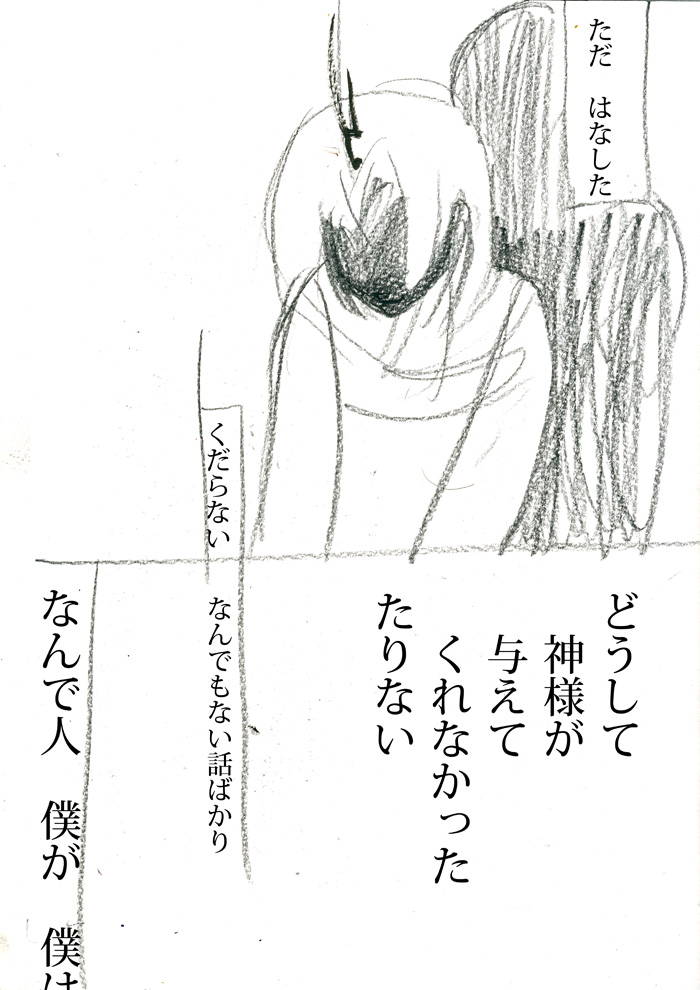 ただ　はなした
くだらない　なんでもない話ばかり
どうして
神様が
与えて
くれなかった
たりない
なんで人　僕が　僕は